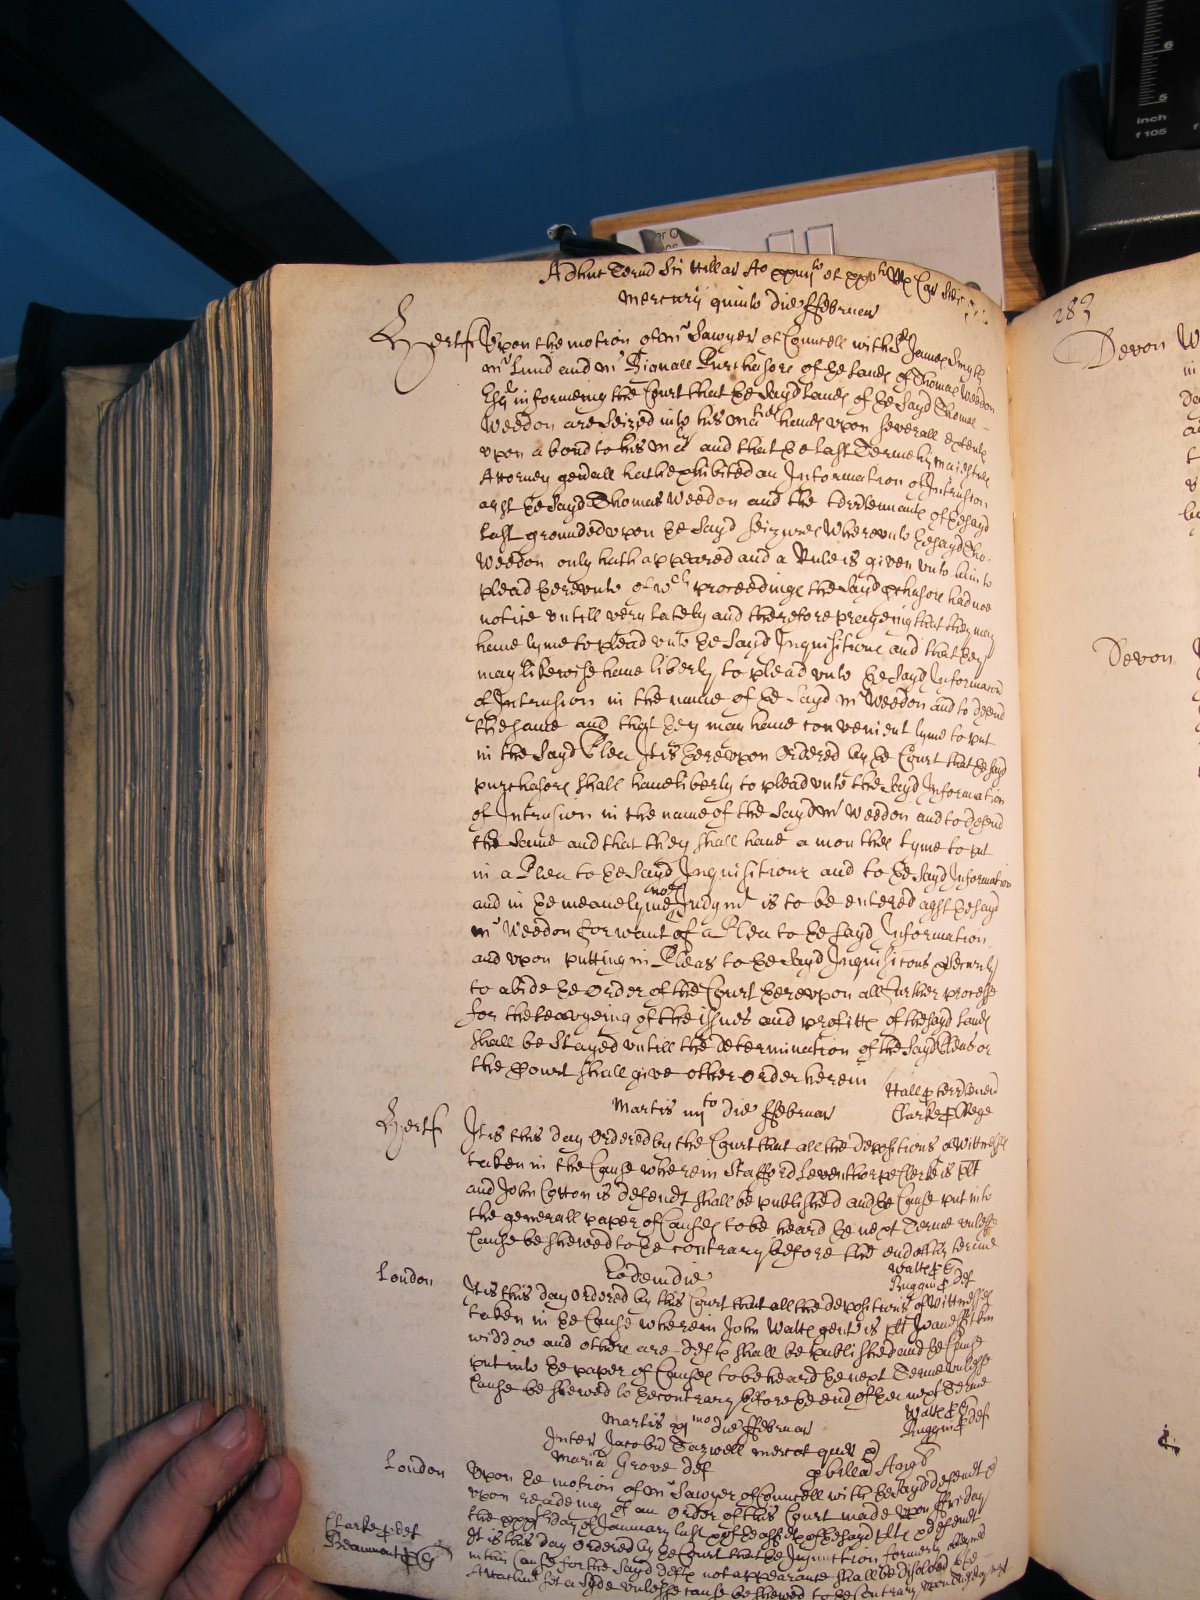 Adhuc Termd Sci Hillar Ao xxiiijto et xxvth Rx Car
Mercurij quinto die ffebruar
Hertf Upon the motion of mr Sawyer of Councell with Sr James Smyth
mr Lund and mr Bignall Purchasors of ye lands of Thomas Weedon
Esqr informeing the Court that ye sayd lands of ye sayd Thomas
Weedon are Seized into his maties hands upon severall extents
upon a bond to his maty and that ye last Terme his maiesties
Attorney generall hath exhibited an Information of Intrusion
agst ye sayd Thomas Weedon and the terrtennants of ye sayd
last grounded upon ye sayd seizures Whereunto ye sayd Tho:
Weedon only hath appeared and a Rule is given unto him to
plead thereunto of wch proceedings the sayd purchasors had noe
notice untill very lately and therefore prayeing that they may
have tyme to plead unto ye sayd Inquisitions and that they
may likewise have liberty to plead unto ye sayd Informacon
of Intrusion in the name of ye sayd mr Weedon and to defend
the same and that they may have convenient tyme to put
in the sayd Plea It is hereupon Ordered by ye Court that ye sayd
purchasors shall have liberty to plead unto the sayd Information
of Intrusion in the name of the sayd mr Weedon and to defend
the same and that they shall have a monthes tyme to put
in a Plea to ye sayd Inquisitions and to ye sayd Information
and in ye meane tyme noe Judgmt is to be entered agst ye sayd
mr Weedon for want of a Plea to ye sayd Information
and upon putting in Pleas to ye sayd Inquisicons & Security
to abide ye Order of the Court hereupon all further processe
for the leavyeing of the issues and profitts of the sayd lands
shall be stayed untill the determination of the sayd Pleas or
the Court shall give other Order herein
Hall p terrtenent
Clarke p Rege
Martis iiijto die ffebruar
Hertf It is this day Ordered by the Court that all the depositions of Wittnesses
taken in the Cause wherein Stafford Leventhorpe Clerke is plt
and John Cotton is defendt shall be published and ye Cause put into
the generall paper of Causes to be heard ye next Terme unlesse
Cause be shewed to ye contrary before the end of this terme
Walter p Q
Ruggin p def
Eodem die
London It is this day Ordered by this Court that all the depositions of Wittnesses
taken in ye Cause wherein John Walte gent is plt
widdow and others are defts shall be published and ye Cause
put into ye paper of Causes to be heard ye next Terme unlesse
Cause be shewed to ye contrary before ye end of ye next Terme
Walter p Q
Ruggin p def
Martis die ffebruar
Inter Jacobu Tazwell mercat quer &
Maria Grove def p billa Angl
London Upon ye motion of mr Sawyer of Councell with ye sayd defendt &
upon reading of an Order of this Court made upon ffriday
the day of January last
It is this day Ordered by ye Court that ye Injunction formerly
in this Cause for the sayd defts not appearance shall be disolved & the
Attachmt set a side unlesse cause be shewed to ye Contrary upon
Clarke p def
Beaumont p Q
283
Devon
Devon
inch
f 105
6
5